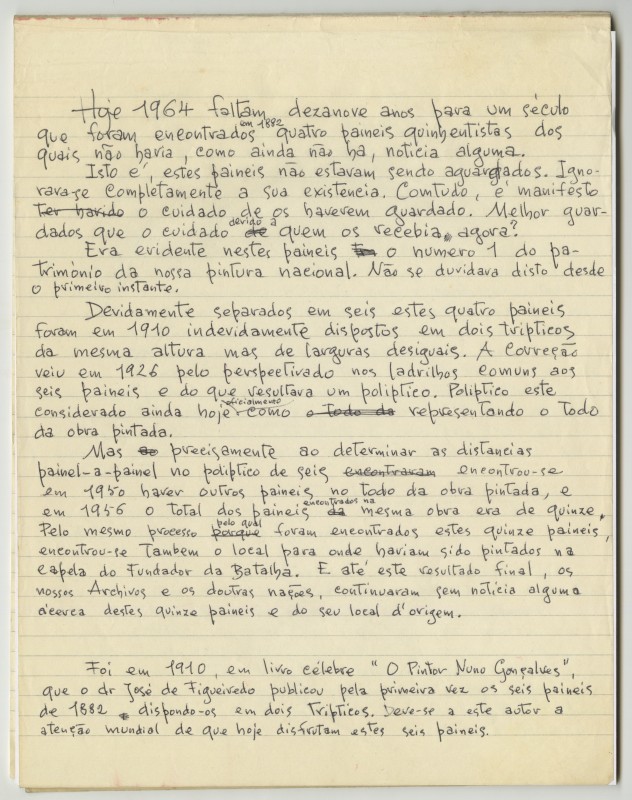 Hoje 1964 faltam dezanove anos para um século
que foram encontrados em 1882 quatro paineis quinhentistas dos
quais não havia, como ainda não há, noticia alguma.
Isto é, estes paineis não estavam sendo aguardados. Igno-
rava-se completamente a sua existencia. Comtudo, é manifesto
Ter havido o cuidado de os haverem guardado. Melhor guar-
dados que o cuidado devido a de quem os recebia, agora?
Era evidente nestes paineis o numero 1 do pa-
trimónio da nossa pintura nacional. Não se duvidava disto desde
o primeiro instante.
Devidamente separados em seis estes quatro paineis
foram em 1910 indevidamente dispostos em dois tripticos
da mesma altura mas de larguras desiguais. A correção
veiu em 1926 pelo perspectivado nos ladrilhos comuns aos
seis paineis e do que resultava um poliptico. Poliptico este
considerado ainda hoje oficialmente como o Todo da representando o Todo
da obra pintada.
Mas ao precisamente ao determinar as distancias
painel-a-painel no poliptico de seis encontraram encontrou-se
em 1950 haver outros paineis no todo da obra pintada, e
em 1956 o total dos paineis encontrados na da mesma obra era de quinze.
Pelo mesmo processo pelo qual porque foram encontrados estes quinze paineis,
encontrou-se Tambem o local para onde haviam sido pintados na
capela do Fundador da Batalha. E até este resultado final, os
nossos Archivos e os doutras nações, continuaram sem noticia alguma
àcerca destes quinze paineis e do seu local d'origem.
Foi em 1910, em livro célebre "O Pintor Nuno Gonçalves",
que o dr José de Figueiredo publicou pela primeira vez os seis paineis
de 1882, dispondo-os em dois Tripticos. Deve-se a este autor a
atenção mundial de que hoje disfrutam estes seis paineis.